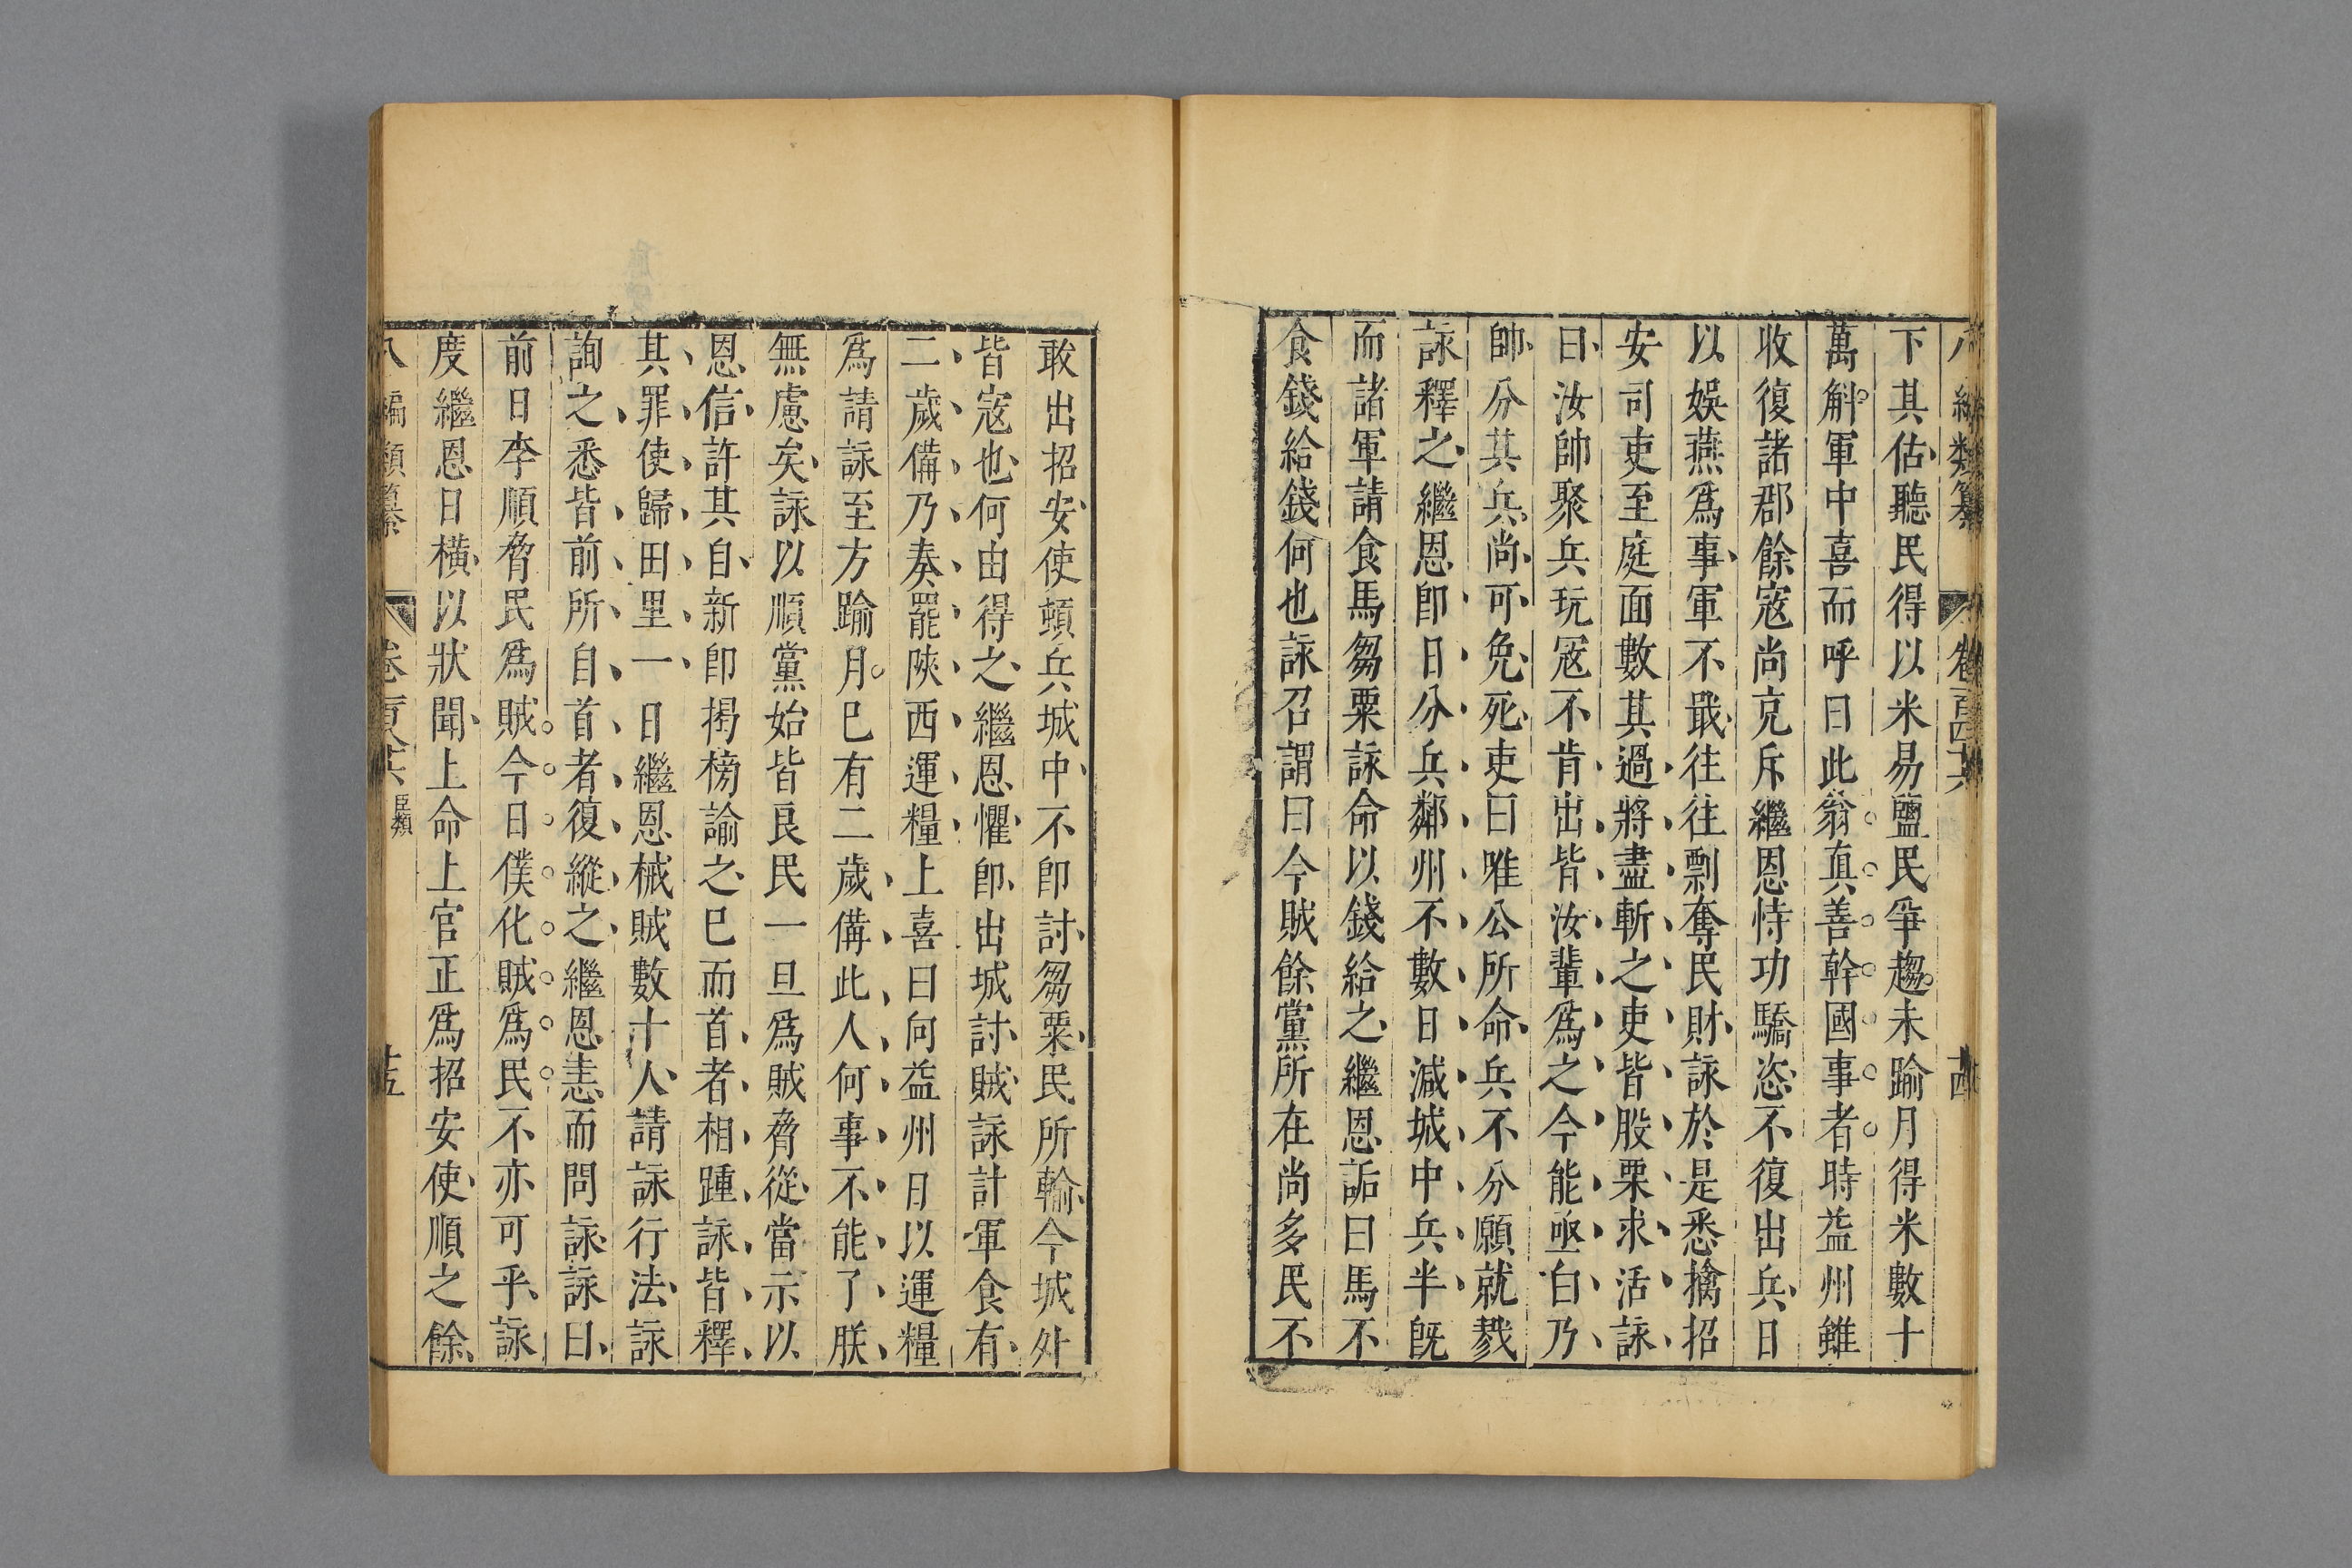 八編類纂 卷一百四十六 十四
下其估聽民得以米易鹽民爭趨未踰月得米數十
萬斛軍中喜而呼曰此翁真善幹國事者時益州雖
收復諸郡餘寇尚充斥繼恩恃功驕恣不復出兵日
以娛燕爲事軍不戢往往剽奪民財詠於是悉擒招
安司吏至庭面數其過將盡斬之吏皆股栗求活詠
曰汝帥聚兵玩寇不肯出皆汝輩爲之今能亟白乃
帥分其兵尚可免死吏曰唯公所命兵不分願就戮
詠釋之繼恩卽日分兵鄰州不數日減城中兵半旣
而諸軍請食馬芻粟詠命以錢給之繼恩詬曰馬不
食錢給錢何也詠召謂曰今賊餘黨所在尚多民不
敢出招安使頓兵城中不卽討芻粟民所輸今城外
皆寇也何由得之繼恩懼卽出城討賊詠計軍食有
二歲備乃奏罷陝西運糧上喜曰向益州日以運糧
爲請詠至方踰月已有二歲備此人何事不能了朕
無慮矣詠以順黨始皆良民一旦爲賊脅從當示以
恩信許其自新卽揭榜諭之已而首者相踵詠皆釋
其罪使歸田里一日繼恩械賊數十人請詠行法詠
詢之悉皆前所自首者復縱之繼恩恚而問詠詠曰
前日李順脅民爲賊今日僕化賊爲民不亦可乎詠
度繼恩日橫以狀聞上命上官正爲招安使順之餘
八編類纂 卷 臣類 十五